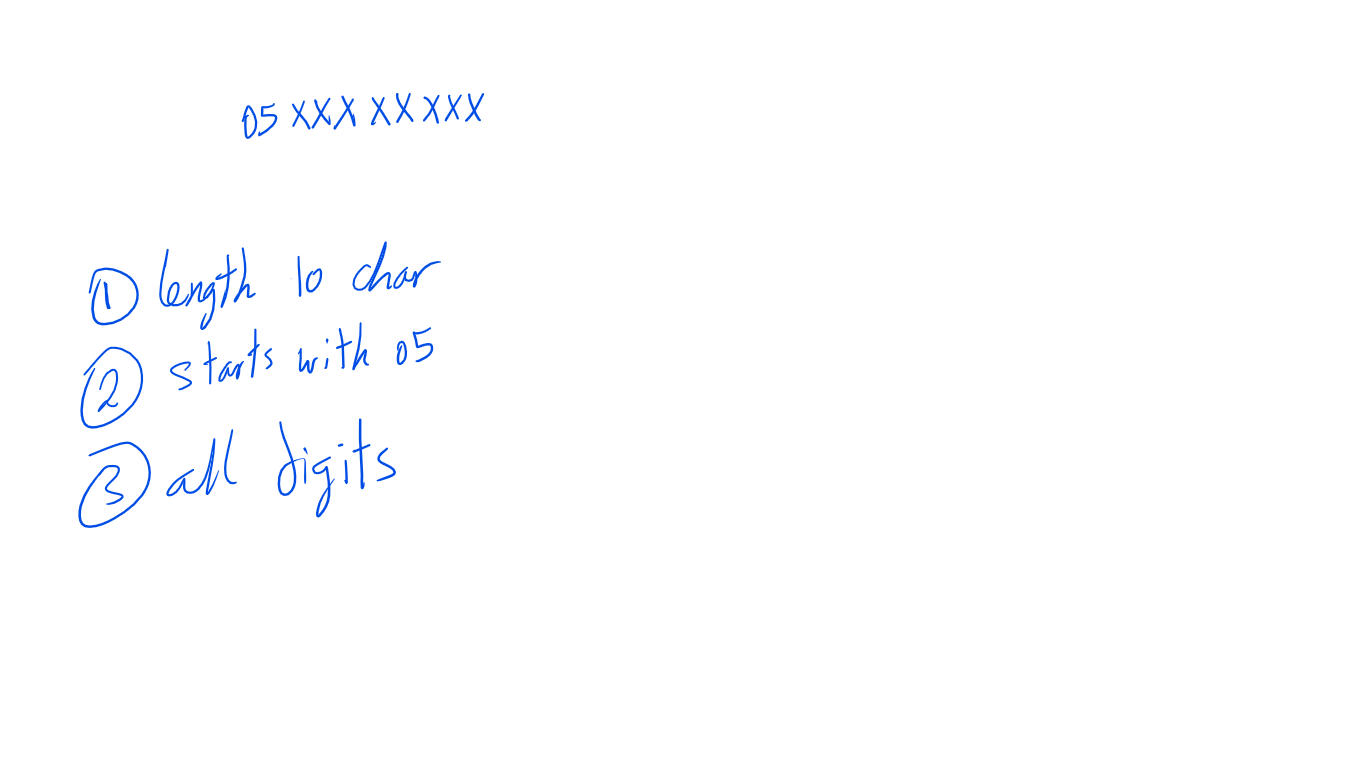 05 XXX XX XXX
① length 10 char
② starts with 05
③ all digits